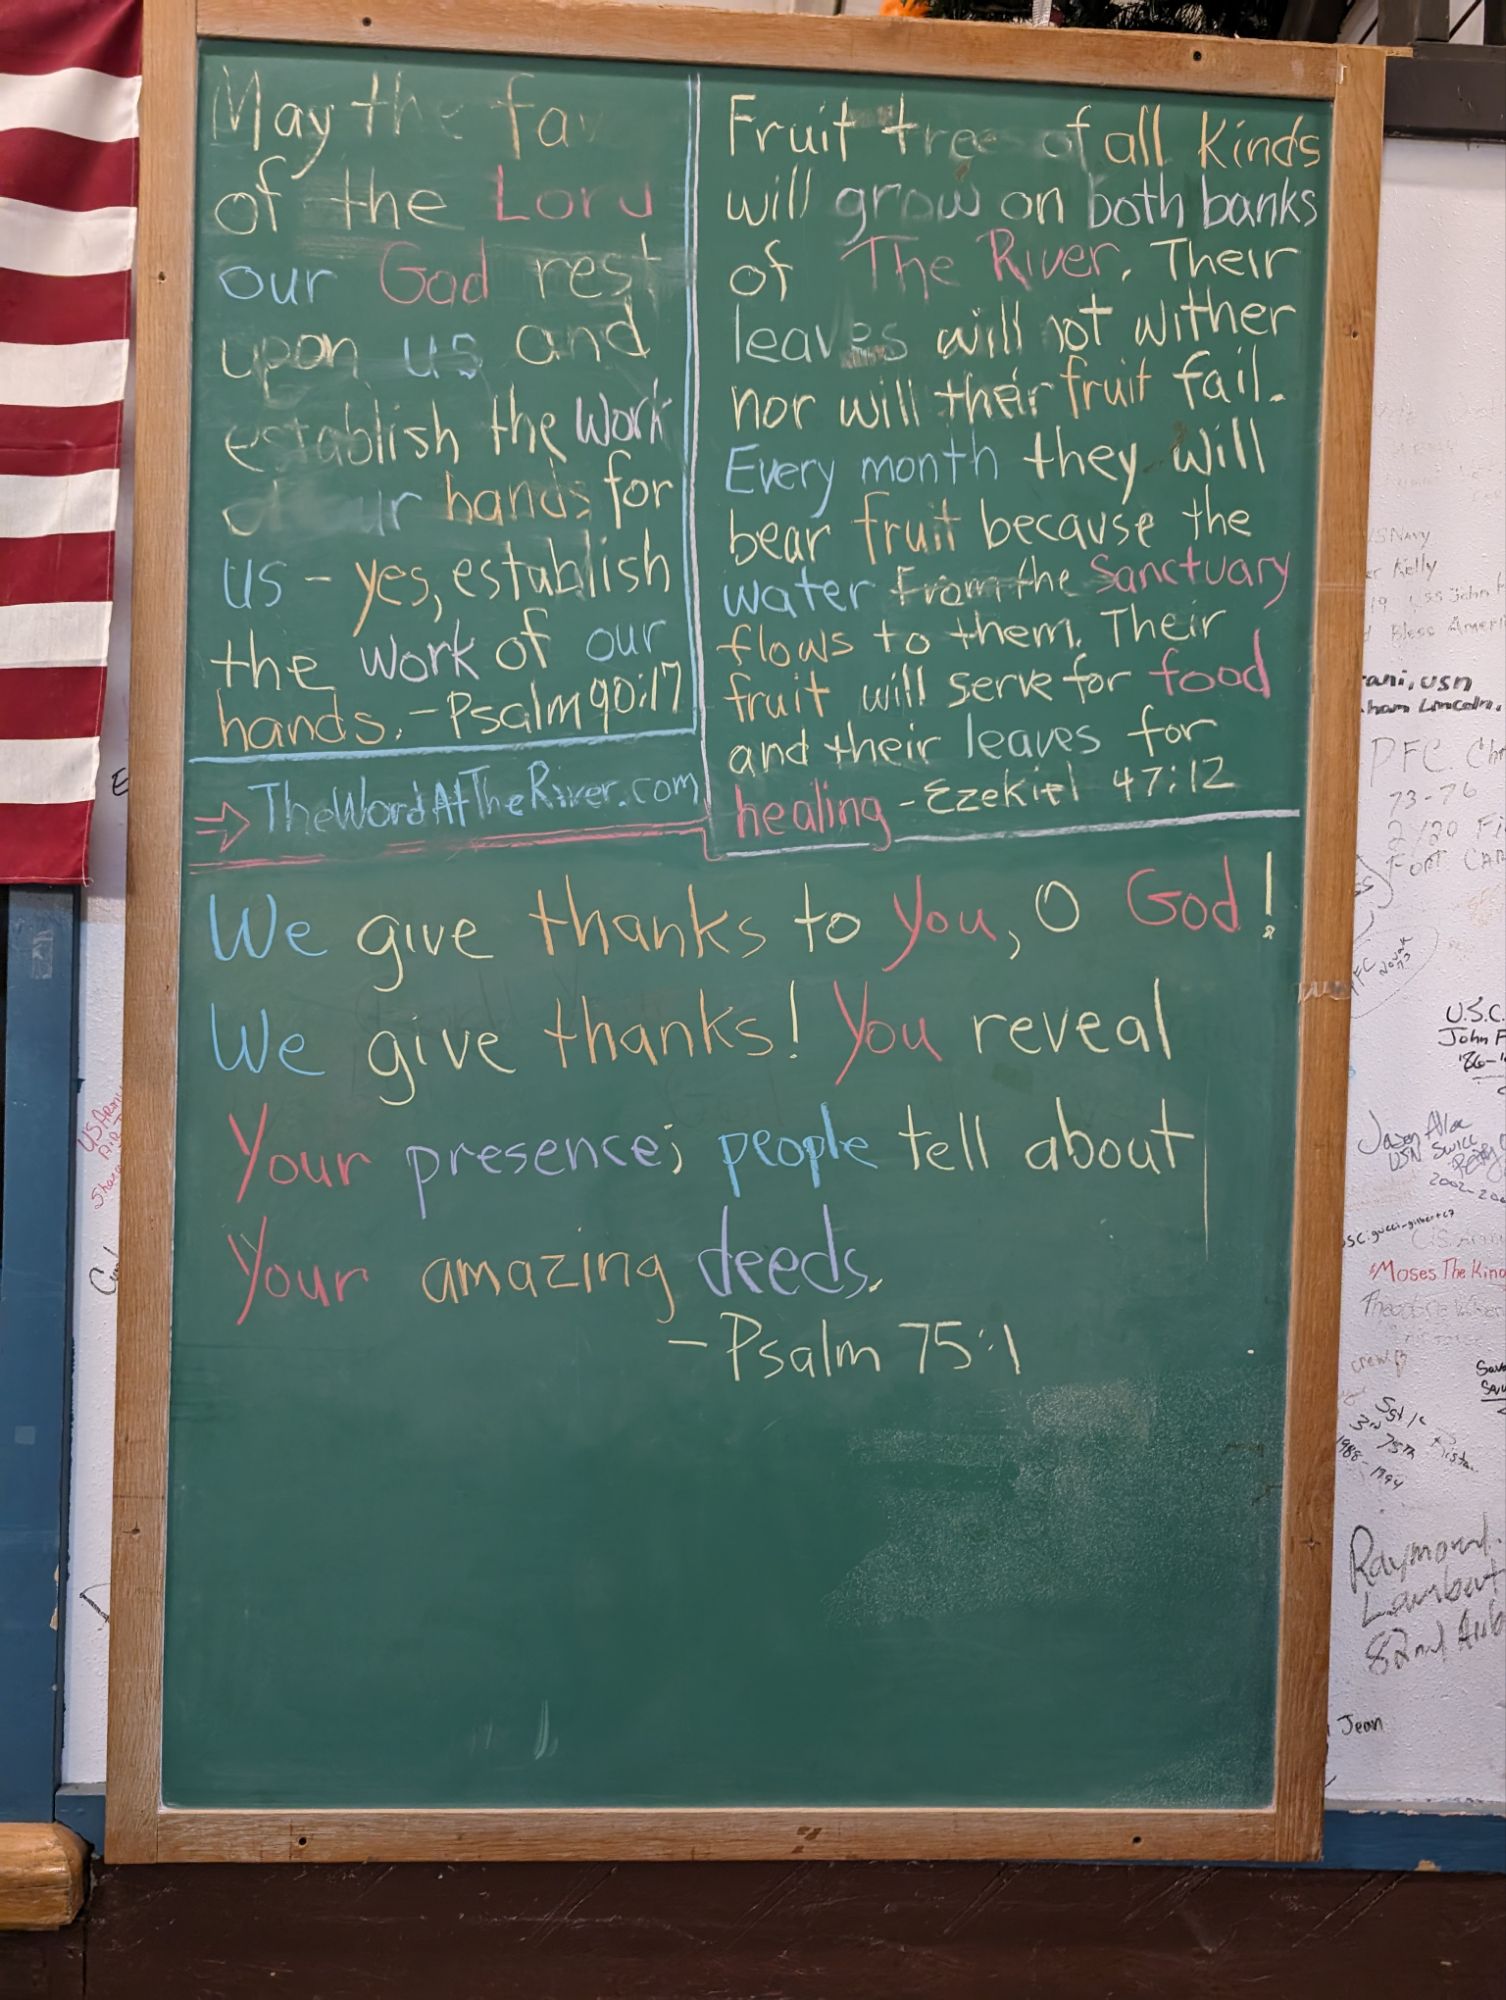 May the fa
of the Lord
our God rest
upon us and
establish the work
our hands for
us - yes, establish
the work of our
hands. - Psalm 90:17
→ TheWordAtTheRiver.com
Fruit tree of all kinds
will grow on both banks
of The River. Their
leaves will not wither
nor will their fruit fail.
Every month they will
bear fruit because the
water from the Sanctuary
flows to them. Their
fruit will serve for food
and their leaves for
healing - Ezekiel 47:12
We give thanks to You, O God!
We give thanks! You reveal
Your presence; people tell about
Your amazing deeds.
- Psalm 75:1
US Navy
Kelly
USS John
Bless Ameri
rani, USN
ham Lincoln.
PFC. Chr
73-76
2/20 Fi
FORT. CAM
PFC
U.S.C.
John F
'86-
Jason
USN
2002-200
Moses The King
75th
1988-1994
Raymond
Lambert
82nd
Jean